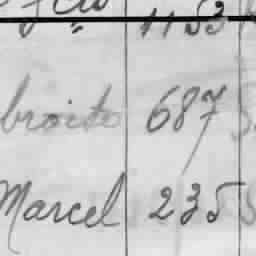 1153
broito 687
Marcel 235